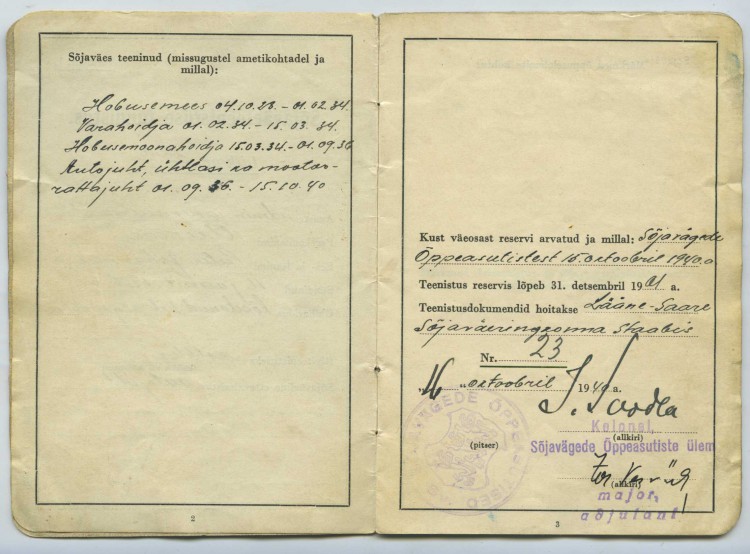 Sõjaväes teeninud (missugustel ametikohtadel ja
millal):
Hobusemees 04.10.23. - 01.02.34.
Varahoidja 01.02.34. - 15.03.34.
Hobusemoonahoidja 15.03.34. - 01.09.36
Autojuht, ühtlasi ka mootor-
rattajuht 01.09.36. - 15.10.40
2
Kust väeosast reservi arvatud ja millal: Sõjavägede
Õppeasutistest 15. oktoobril 1940.a
Teenistus reservis lõpeb 31. detsembril 1961 a.
Teenistusdokumendid hoitakse Lääne-Saare
Sõjaväeringkonna Staabis
Nr. 23
"16" oktoobril 1940 a.
J. Soodla
Kolonel,
(allkiri)
(pitser)
Sõjavägede Õppeasutiste ülem
(allkiri)
major,
adjutant
3